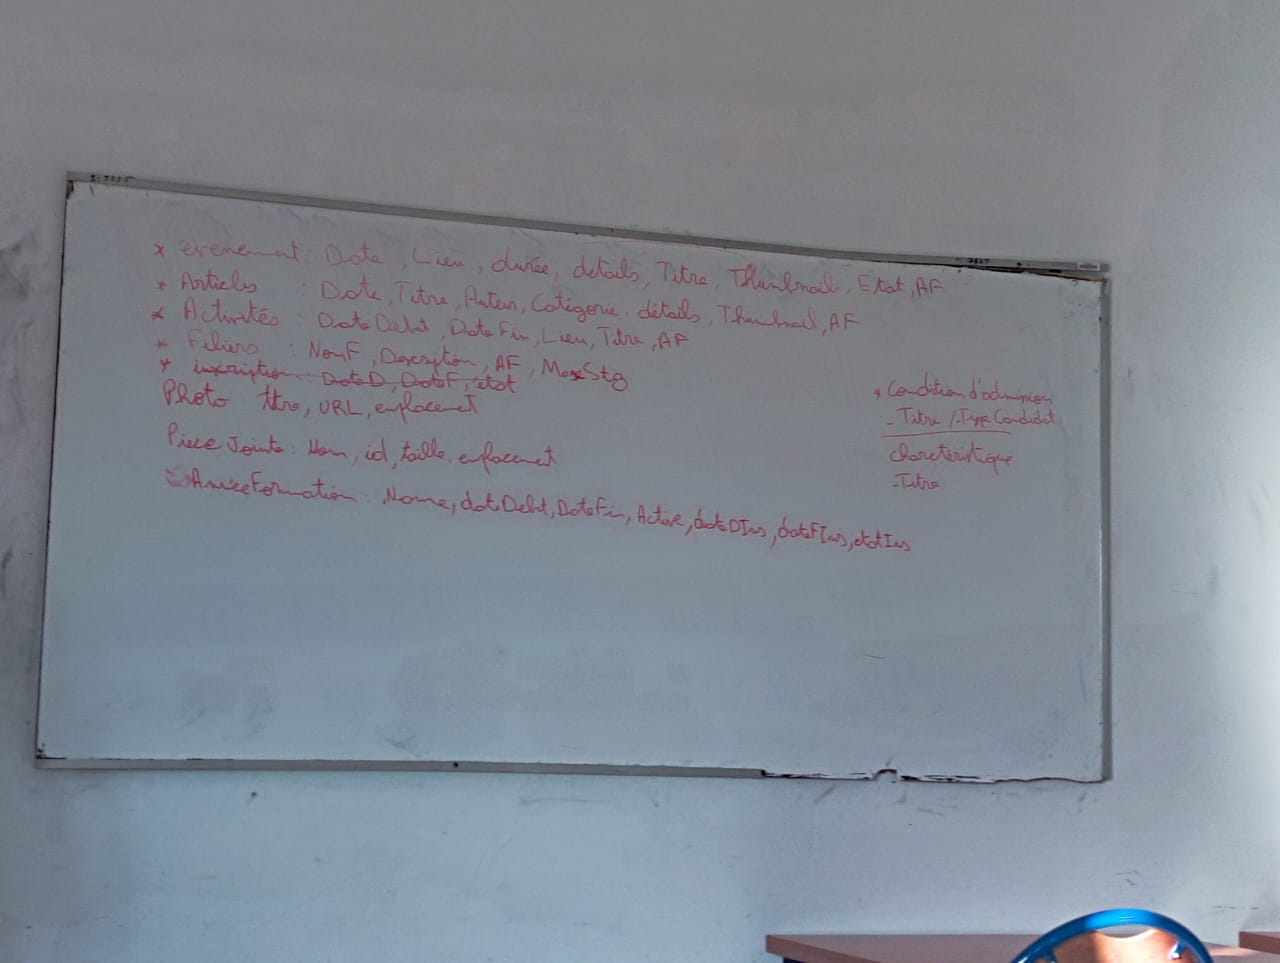 * evenement : Date , Lieu , durée , details , Titre , Thumbnail , Etat , AF
* Articles : Date , Titre , Auteur , Catégorie , détails , Thumbnail , AF
* Activités : Date Debut , Date Fin , Lieu , Titre , AF
* Filiers : NomF , Description , AF , MaxStg
* inscription : DateD , DateF , etat
Photo : titre , URL , emplacement
Piece Jointe : Nom , id , taille , emplacement
AnnéeFormation : Nome , dateDebut , DateFin , Active , dateDIns , dateFIns , etatIns
* Condition d'admission
- Titre / -Type Candidat
charactéristique
- Titre